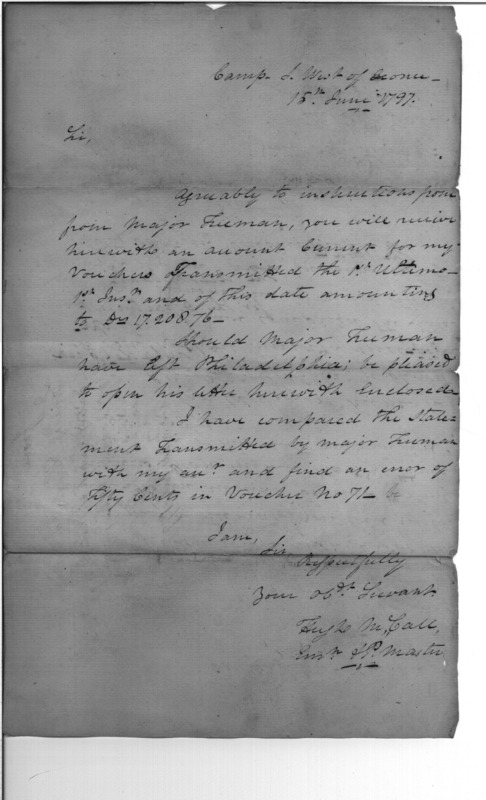 Camp S. West of Oconee
15th June 1797.
Sir,
Agreeably to instructions from
from Major Freeman, you will receive
herewith an account Current for my
Vouchers Transmitted the 1st Ultimo
1st Inst. and of this date amounting
to Ds 17.208.76
Should Major Freeman
have left Philadelphia; be pleased
to open his letter herewith Enclosed
I have compared the state=
ment Transmitted by major Freeman
with my acct. and find an error of
Fifty Cents in Voucher No 71
I am,
Sir
Respectfully
Your Obdt. Servant
Hugh McCall,
Ensn. & P. Master